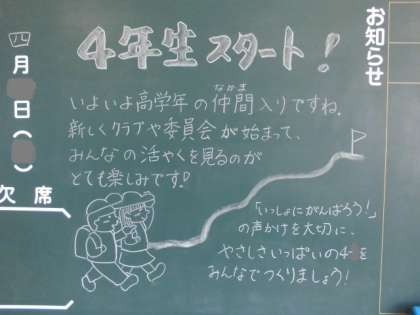 お知らせ
4年生スタート!
いよいよ高学年の仲間入りですね。
なかま
新しくクラブや委員会が始まって、
みんなの活やくを見るのが
とても楽しみです!
「いっしょにがんばろう!」
の声かけを大切に、
やさしさいっぱいの4 を
みんなでつくりましょう!
四月 日( )
欠席